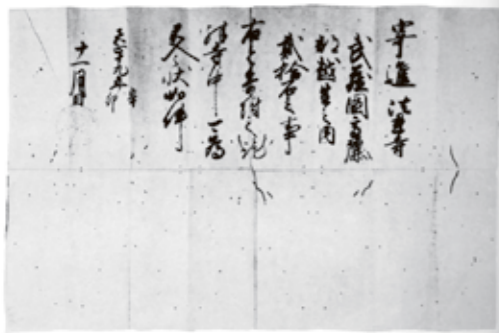 寄進 法恩寺
武蔵國高麗
郡越生之内
弐拾石之事
右令寄附之訖
寺中可為
不入状如件
天正十九年辛卯
十一月日